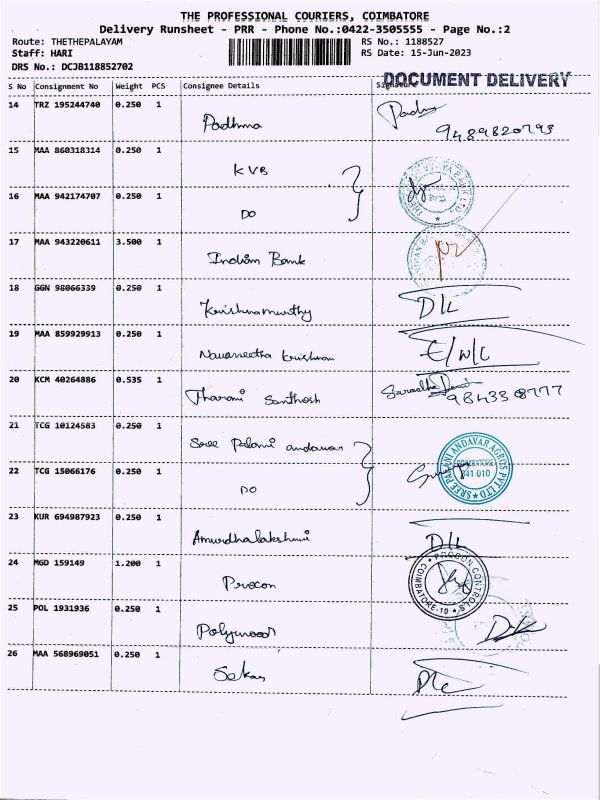 THE PROFESSIONAL COURIERS, COIMBATORE
Delivery Runsheet - PRR - Phone No.:0422-3505555 - Page No.:2
Route: THETHEPALAYAM RS No.: 1188527
Staff: HARI RS Date: 15-Jun-2023
DRS No.: DCJB118852702
DOCUMENT DELIVERY
S No Consignment No Weight PCS Consignee Details Signature
14 TRZ 195244740 0.250 1
Padhma
9489820793
15 MAA 860318314 0.250 1
KVB
16 MAA 942174707 0.250 1
DO
17 MAA 943220611 3.500 1
Indian Bank
18 GGN 98066339 0.250 1
Krishnamurthy D/L
19 MAA 859929913 0.250 1
Navaneetha krishnan
20 KCM 40264886 0.535 1
Tharani Santhosh
21 TCG 10124583 0.250 1
Sree Palani andavar
SREE PALANI ANDAVAR AGROS PVT LTD
COIMBATORE
641 010
22 TCG 15066176 0.250 1
DO
23 KUR 694987923 0.250 1
Amurdhalakshmi D/L
24 MGD 159149 1.200 1
Procon
PROCON CONTROLS
COIMBATORE-10
25 POL 1931936 0.250 1
Polywood
26 MAA 568969051 0.250 1
Sekar